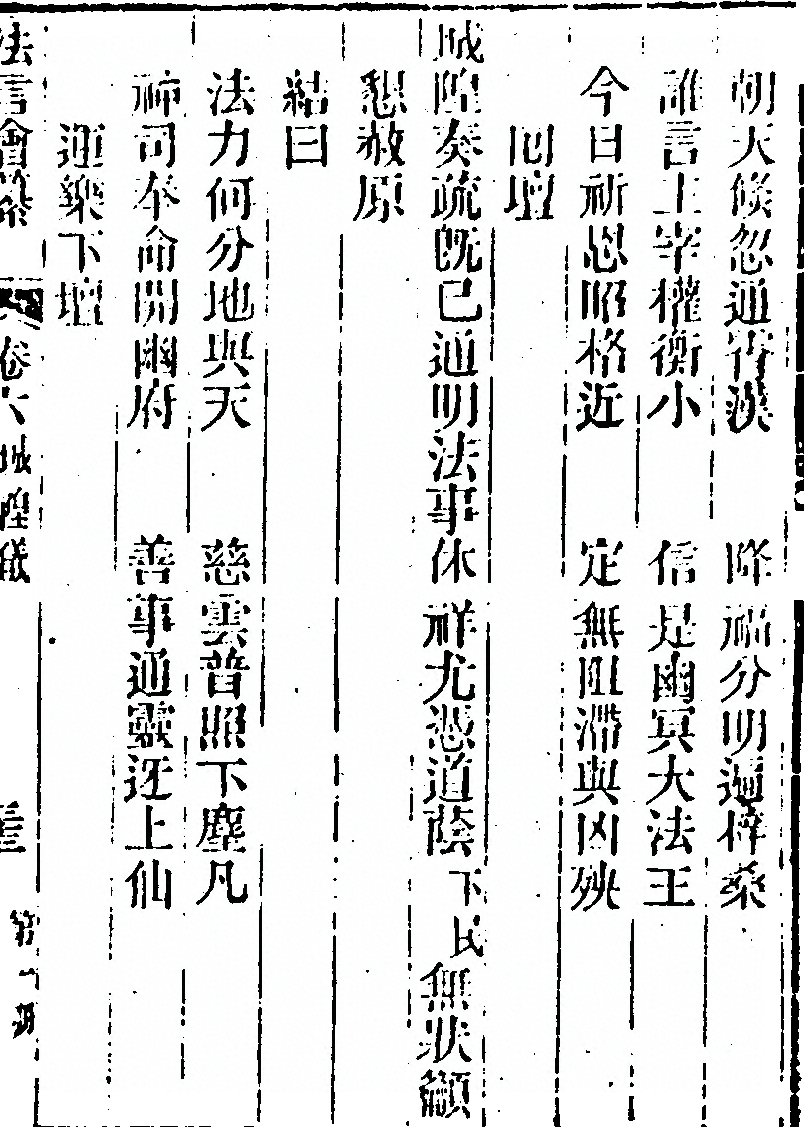 朝天倐忽通霄漢　降福分明遍梓桑
誰言主宰權衡小　信是幽冥大法王
今日祈恩昭格近　定無阻滯與凶殃
回壇
城隍奏疏既已通明法事休祥尤憑道蔭下民無狀籲
懇赦原
結曰
法力何分地與天　慈雲普照下塵凡
神司奉命開幽府　善事通靈迓上仙
運樂下壇
法言會纂　卷六　城隍儀　第一